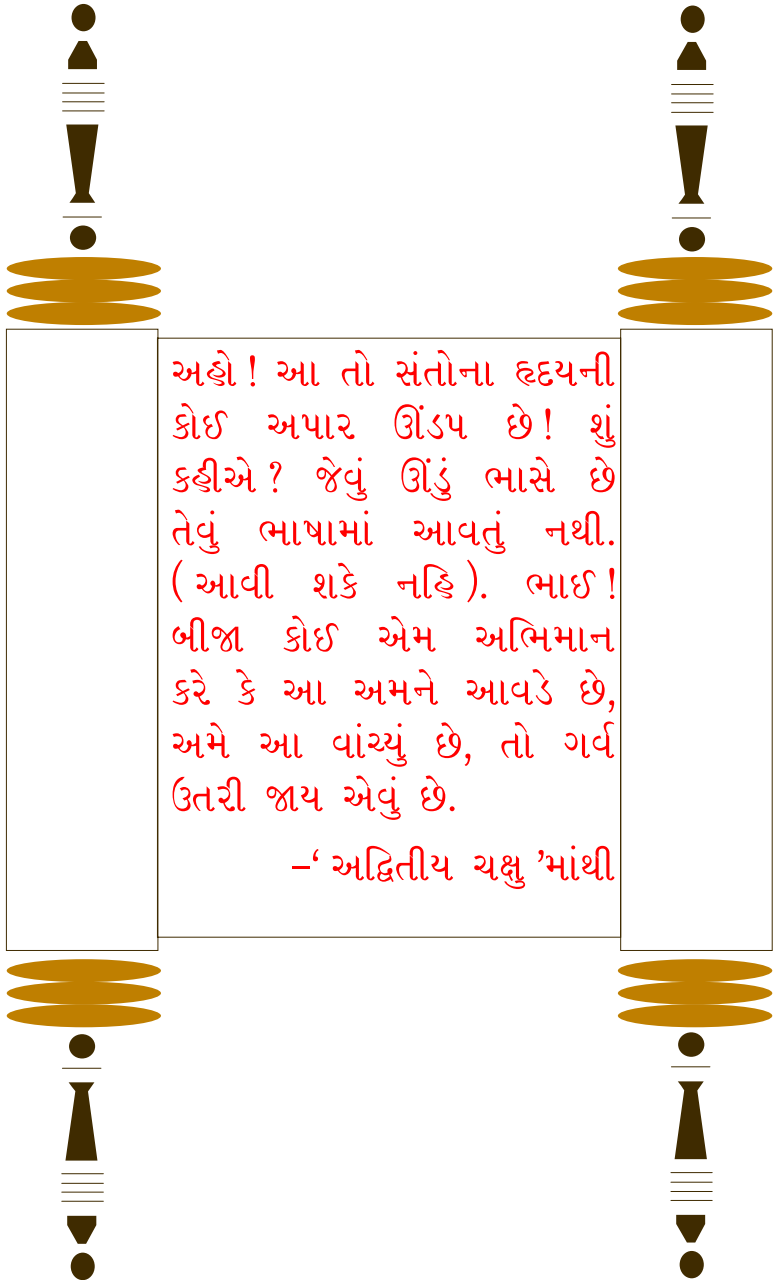 અહો! આ તો સંતોના હૃદયની
કોઈ અપાર ઊંડપ છે! શું
કહીએ? જેવું ઊંડું ભાસે છે
તેવું ભાષામાં આવતું નથી.
(આવી શકે નહિ). ભાઈ!
બીજા કોઈ એમ અભિમાન
કરે કે આ અમને આવડે છે,
અમે આ વાંચ્યું છે, તો ગર્વ
ઉતરી જાય એવું છે.
–‘અદ્વિતીય ચક્ષુ’માંથી